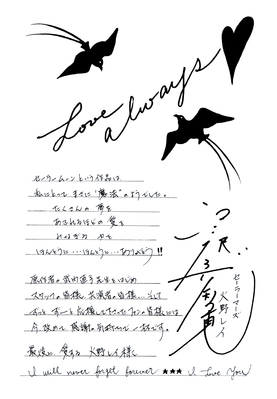 Love always
セーラームーンという作品は
私にとって まさに"魔法"のようでした。
たくさんの 夢を
あふれるほどの 愛を
ほんとうに…ほんとうに…ありがとう!!
原作者の武内直子先生をはじめ
スタッフの皆様、共演者の皆様…そして
ずっと ずーっと応援して下さったファンの皆様には
今、改めて、感謝の気持ちで一杯です。
最後に、愛する 火野レイ様に
I will never forget forever ★★★ I Love You
セーラーマーズ
火野レイ